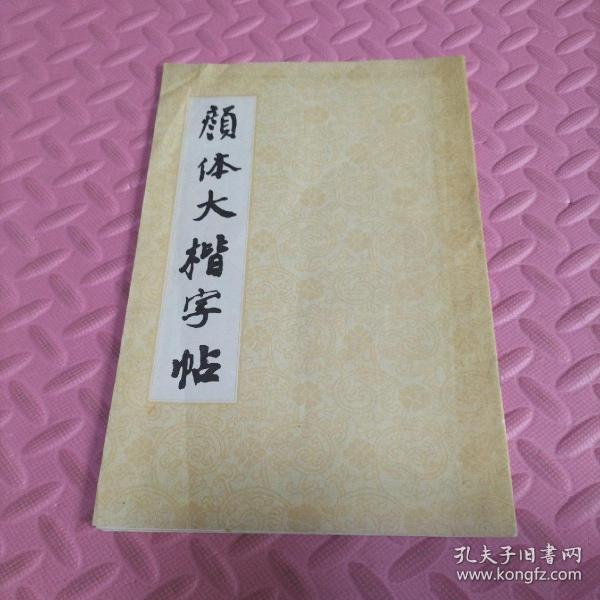 颜体大楷字帖
孔夫子旧书网
www.kongfz.com